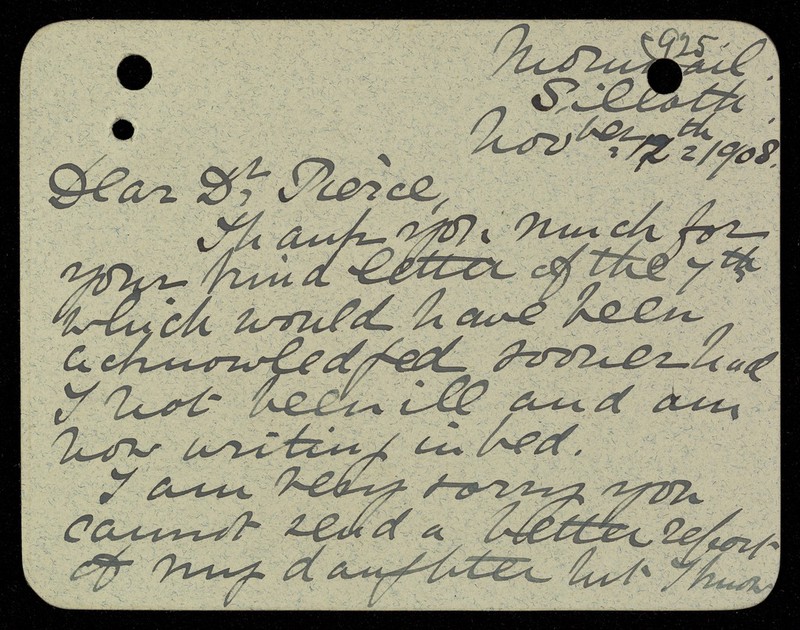 925
Silloth.
Novber 12th 1908.
Dear Dr Pierce,
Thank you much for
your kind letter of the 7th
which would have been
acknowledged sooner had
I not been ill and am
now writing in bed.
I am very sorry you
cannot send a better report
of my daughter but I know